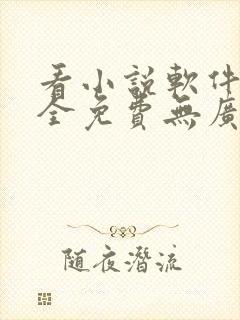 看小説軟件
全免費無廣
隨夜潛流